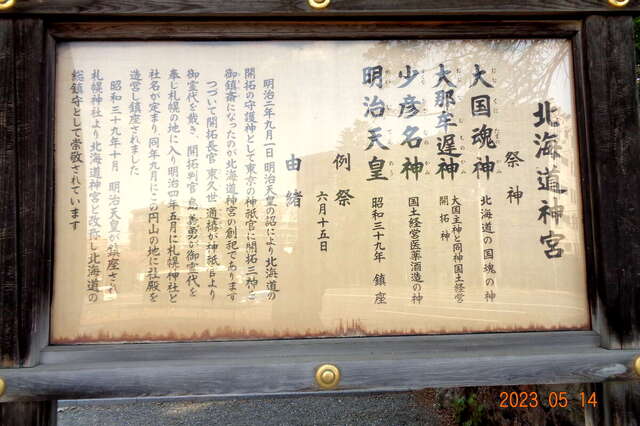 北海道神宮
祭神
大国魂神 北海道の国魂の神
大那牟遅神 大国主神と同神国土経営開拓神
少彦名神 国土経営医薬酒造の神
明治天皇 昭和三十九年 鎮座
例祭
六月十五日
由緒
明治二年九月一日 明治天皇の詔により北海道の
開拓の守護神として東京の神祇官に開拓三神を
御鎮斎になったのが北海道神宮の創祀であります
つづいて開拓長官 東久世通禧が神祇官より
御霊代を戴き、開拓判官 島義勇が御霊代を
奉じ札幌の地に入り明治四年五月に札幌神社と
社名が定まり、同年九月にこの円山の地に社殿を
造営し鎮座されました
昭和三十九年十月 明治天皇が鎮座され
札幌神社より北海道神宮と改称し北海道の
総鎮守として崇敬されています
2023 05 14